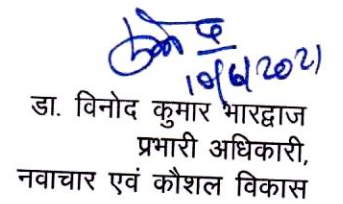 10/6/2021
डा. विनोद कुमार भारद्वाज
प्रभारी अधिकारी,
नवाचार एवं कौशल विकास